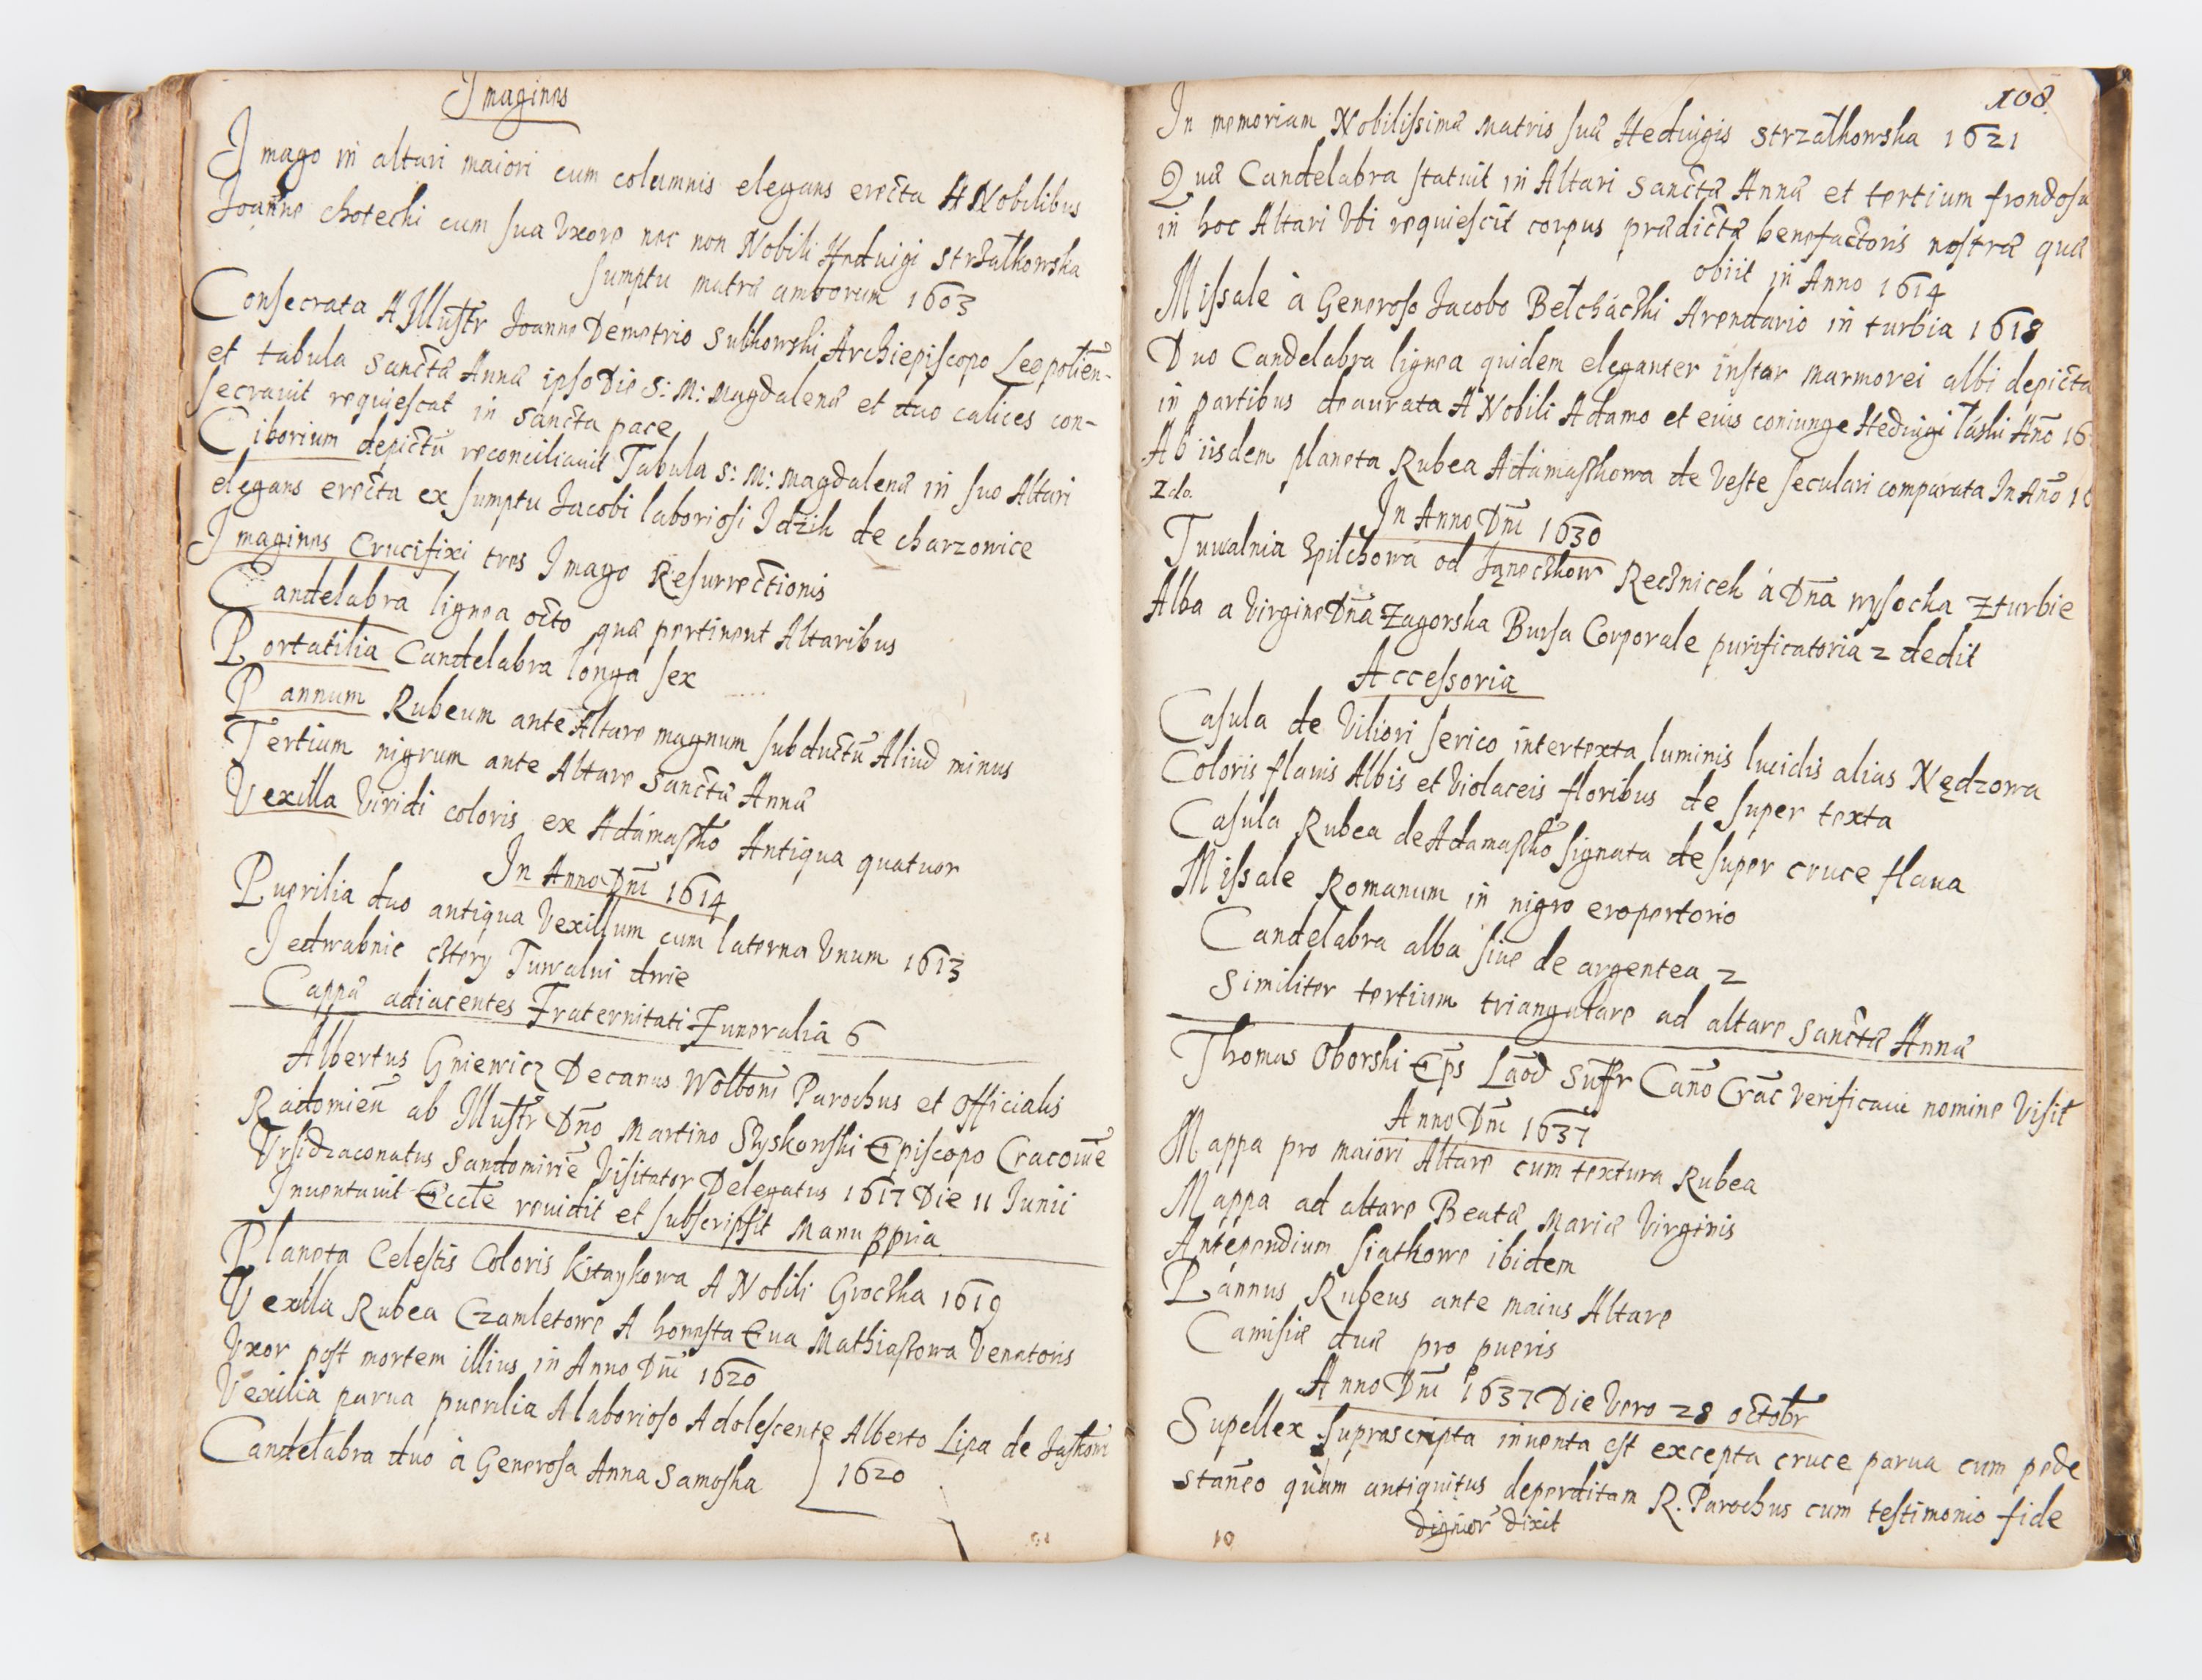 Imagines
Imago in altari maiori cum columnis elegans erecta A Nobilibus
Joanne Chotecki cum sua Uxore nec non Nobili Heduigi Strzałkowska
sumptu matris amborum 1603
Consecrata A Illustr Joanne Demetrio Sulikowski Archiepiscopo Leopolien-
et tabula Sanctæ Annæ ipso Die S: M: Magdalenæ et duo calices con-
secrauit requiescat in sancta pace
Ciborium depictū reconciliauit Tabula S: M: Magdalenæ in suo Altari
elegans erecta ex sumptu Jacobi laboriosi Idzik de Charzowice
Imagines Crucifixi tres Imago Resurrectionis
Candelabra lignea octo quæ pertinent Altaribus
Portatilia Candelabra longa sex
Pannum Rubeum ante Altare magnum subductū Aliud minus
Tertium nigrum ante Altare Sanctæ Annæ
Vexilla Viridi coloris ex Adámasko Antiqua quatuor
In Anno Dni 1614
Puerilia duo antiqua Vexillum cum laterna Vnum 1613
Jedwabnic cztery Tuwalni dwie
Cappæ adiacentes Fraternitati Funeralia 6
Albertus Gniewicz Decanus Wolboń Parochus et Officialis
Radomień ab Illustr Dno Martino Szyskowski Episcopo Cracouiē
Visitator Delegatus 1617 Die 11 Junii
Inuentauit Eccłe reuidit et subscripsit Manu ppria
Planeta Celestis Coloris kitaykowa A Nobili Groczka 1619
Vexilla Rubea Czamletowe A honesta Eua Mathiaszowa Venatoris
Vxor post mortem illius in Anno Dni 1620
Vexilia parua puerilia A laborioso Adolescente Alberto Lipa de
Candelabra duo à Generosa Anna Samoska 1620
108
In memoriam Nobilissimæ Matris suæ Heduigis Strzałkowska 1621
Quæ Candelabra statuit in Altari Sanctæ Annæ et tertium frondosu
in hoc Altari Vbi requiescit corpus prædictæ benefactoris nostræ quæ
obiit in Anno 1614
Missale à Generoso Jacobo Bełcháczki Arendario in turbia 1618
Duo Candelabra lignea quidem eleganter instar marmorei albi depicta
in partibus deaurata A Nobili Adamo et eius coniunge Heduigi Táski Año 16
Ab iisdem planeta Rubea Adámaszkowa de Veste seculari comparata In Año 16
2do.
In Anno Dni 1630
Tuwalnia od Recznicek á Dna wysocka Z turbie
Alba a Virgine Dna Zagorska Bursa Corporale purificatoria 2 dedit
Accessoria
Casula de Viliori serico intertexta luminis lucidis alias Nędzowa
Coloris flauis Albis et Violaceis floribus de super texta
Casula Rubea de Adamaszko signata desuper cruce flaua
Missale Romanum in nigro eropertorio
Candelabra alba siue de argentea 2
Similiter tertium triangulare ad altare Sanctæ Annæ
Thomas Oborski Eps Laod Suffr Cano Crac Verificaui nomine Visit
Anno Dni 1637
Mappa pro maiori Altare cum textura Rubea
Mappa ad altare Beatæ Mariæ Virginis
Antependium siatkowe ibidem
Pannus Rubeus ante maius Altare
Camisiæ duæ pro pueris
Anno Dni 1637 Die Vero 28 octobr
Supellex suprascripta inuenta est excepta cruce parua cum pede
Stañeo quam antiquitus deperditam R. Parochus cum testimonio fide
dignior dixit